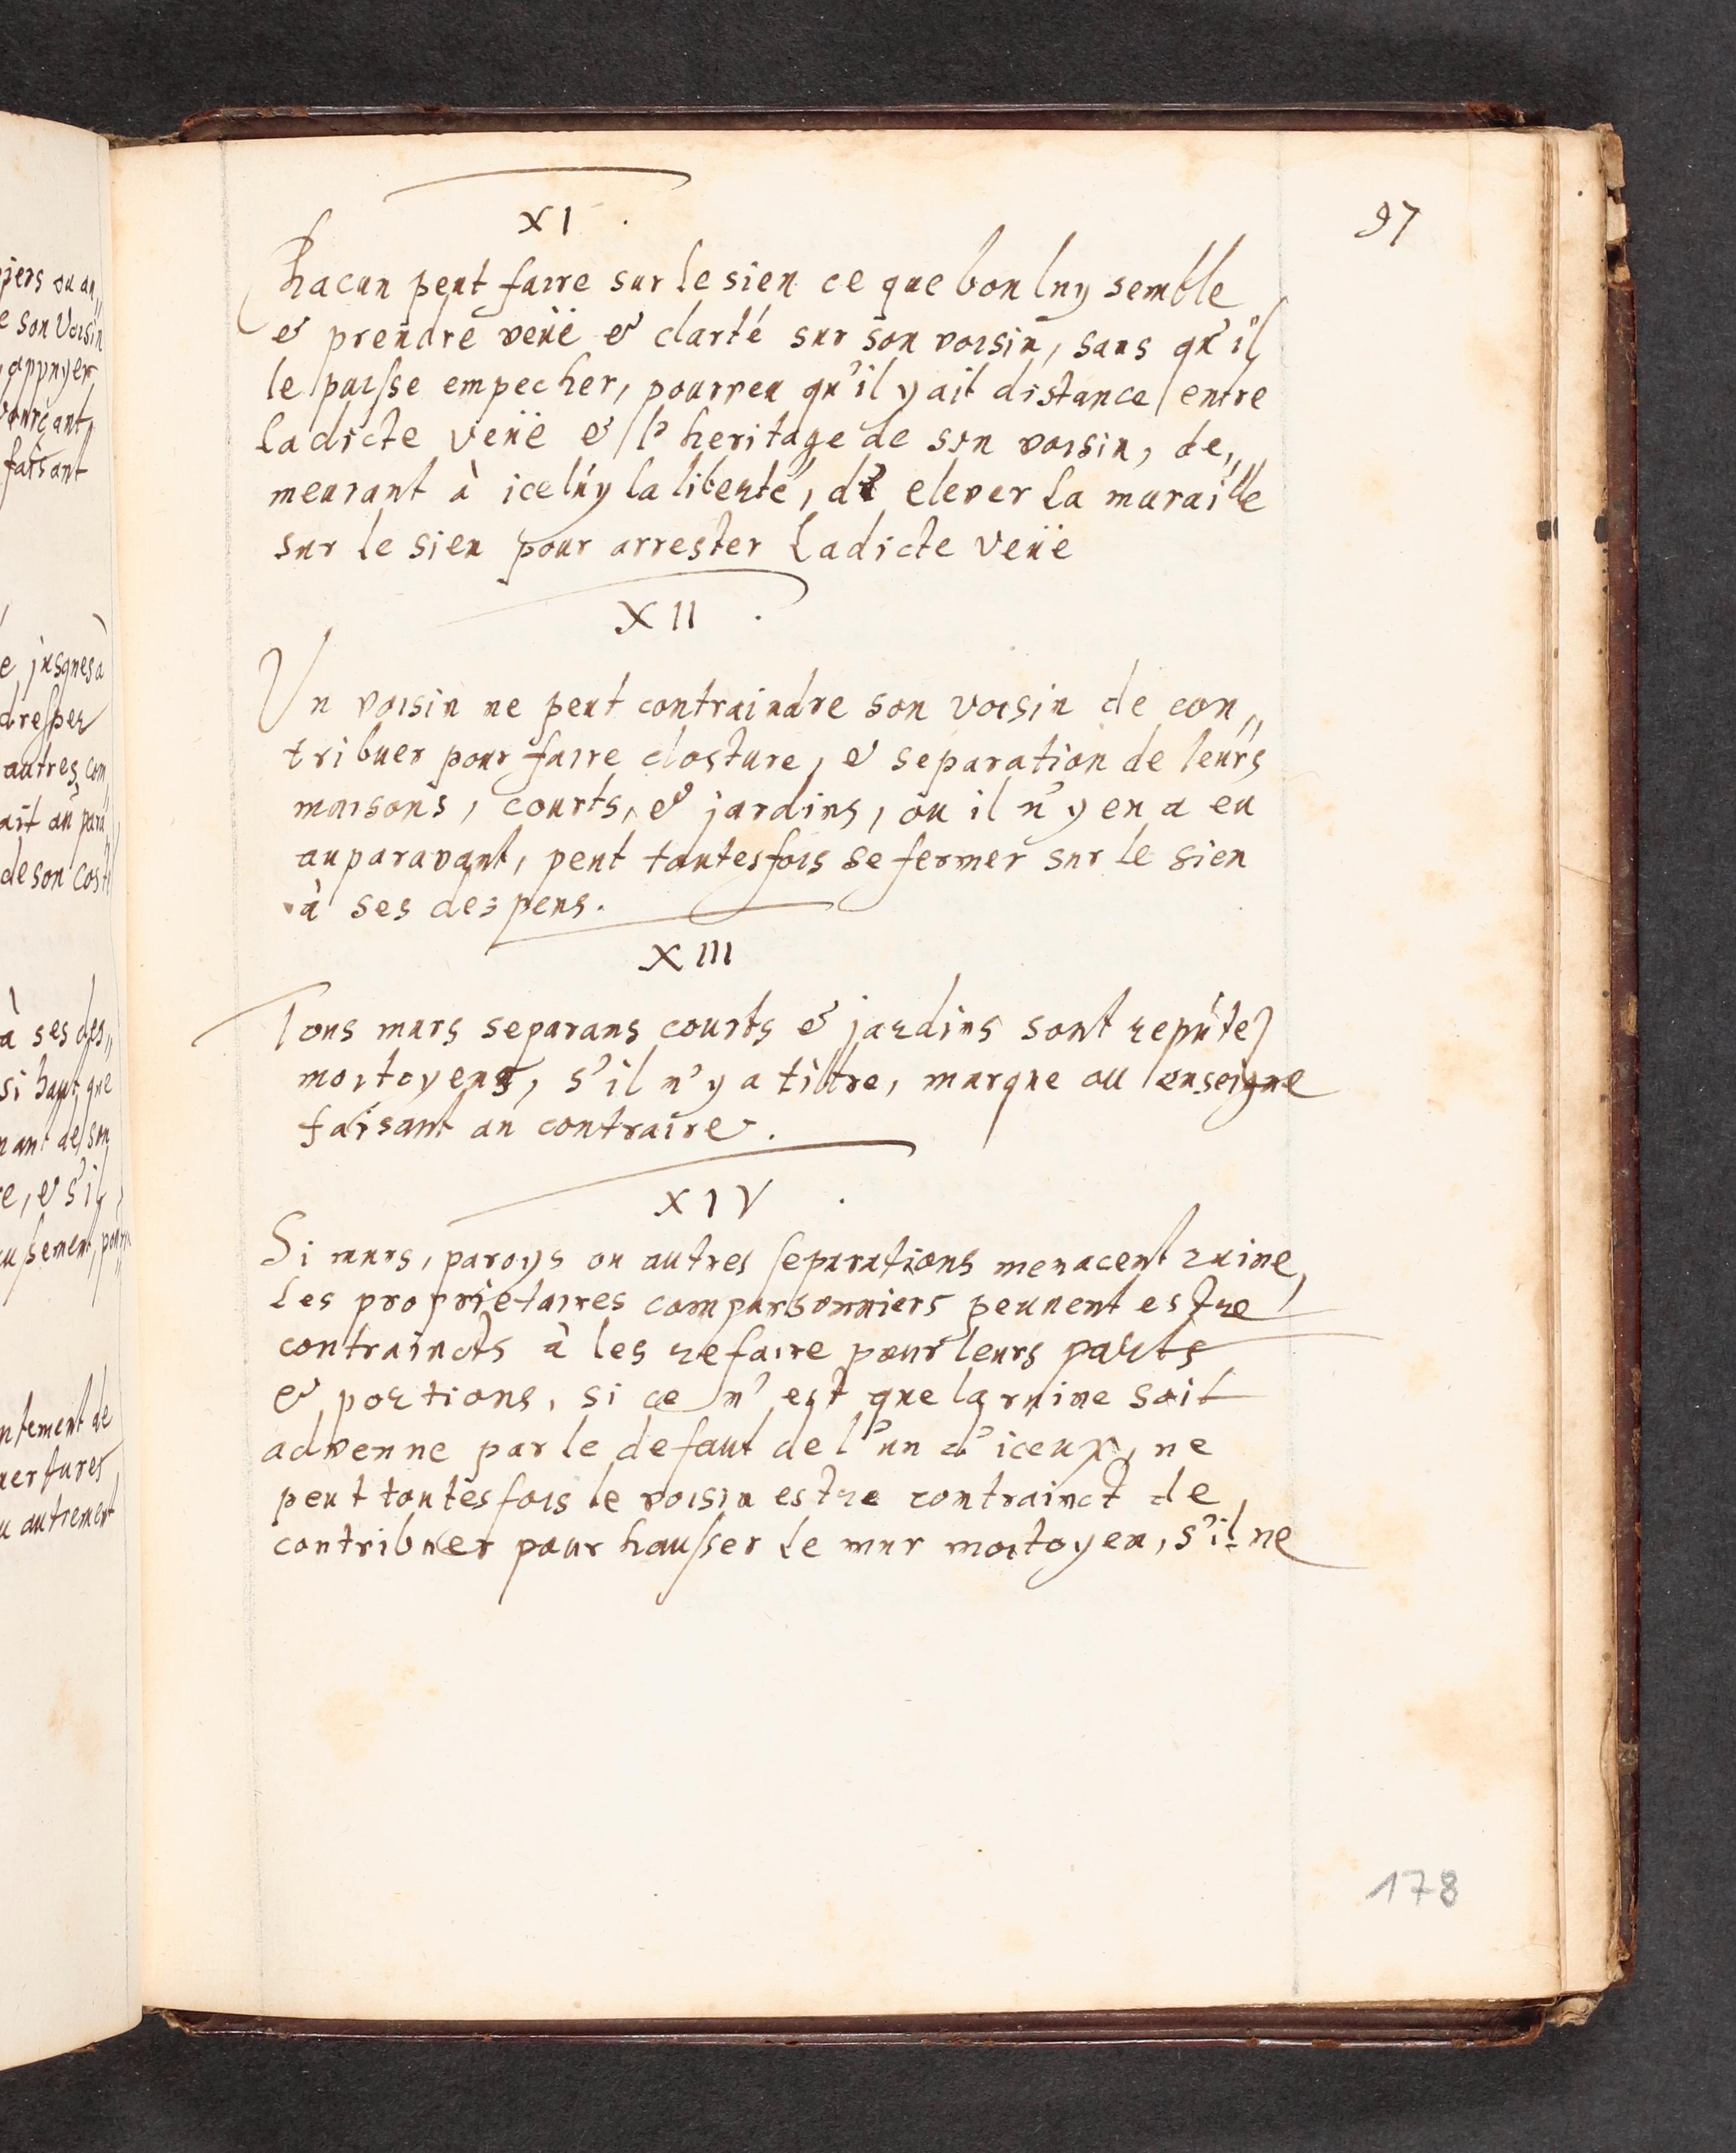 XI.
97
Chacun peut faire sur le sien ce que bon luy semble
& prendre veüe & clarté sur son voisin, sans qu'il
le puisse empecher, pourveu qu'il y ait distance entre
ladicte veüe & l'heritage de son voisin, de„
meurant à iceluy la liberté, de elever la muraille
sur le sien pour arrester Ladicte veüe
XII.
Un voisin ne peut contraindre son voisin de con„
tribuer pour faire closture, & separation de leurs
maisons, courts, & jardins, ou il n'y en a eu
auparavant, peut toutesfois se fermer sur le sien
à ses despens.
XIII
Tous murs separans courts & jardins sont reputez
moitoyens, s'il n'y a tiltre, marque ou enseigne
faisant au contraire.
XIV.
Si murs, paroys ou autres separations menacent ruine,
Les proprietaires comparsonniers peuuent estre
contraincts à les refaire pour leurs parts
& portions, si ce n'est que la ruine soit
advenne par le defaut de l'un d'iceux, ne
peut toutesfois le voisin estre contrainct de
contribuer pour hausser le mur moitoyen, s'il ne
178
piers ou au„
e son Voisin
appuyer
faisant
e jusques à
autres com
ait au para
de son cost
à ses des„
si haut que
nant de son
re, & s'il
ntement de
uertures
u autrement